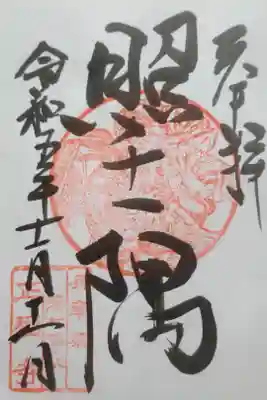 奉拝
照千一隅
令和五年十一月十一日